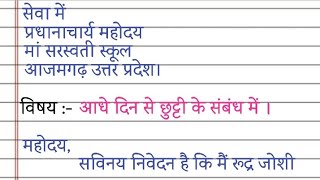 सेवा में
प्रधानाचार्य महोदय
मां सरस्वती स्कूल
आजमगढ़ उत्तर प्रदेश।
विषय :- आधे दिन से छुट्टी के संबंध में ।
महोदय,
सविनय निवेदन है कि मैं रूद्र जोशी